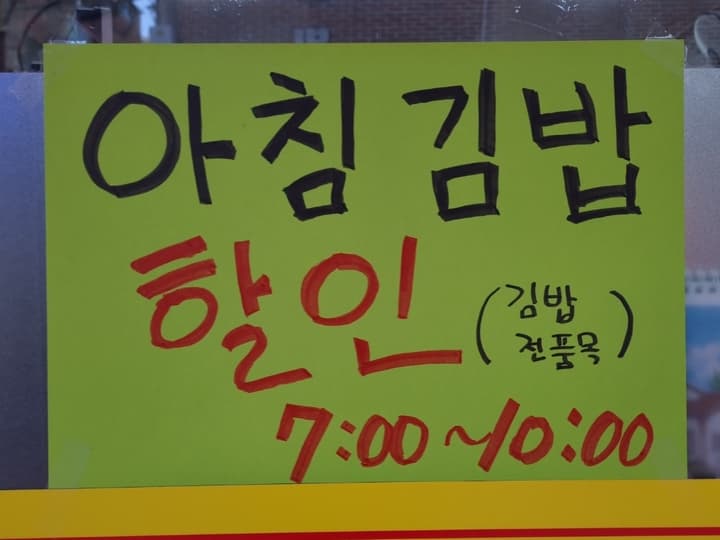 아침 김밥
할인 (김밥
전품목)
7:00~10:00